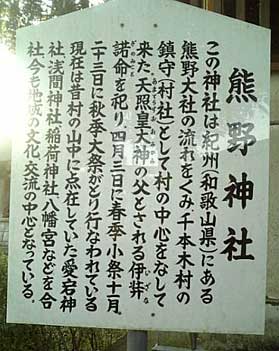 熊野神社
この神社は紀州(和歌山県)にある
熊野大社の流れをくみ千本木村の
鎮守(村社)として村の中心をなして
来た天照皇大神の父とされる伊弉
諾命を祀り四月三日に春季小祭十一月
二十三日に秋季大祭がとり行なわれている
現在は昔村の山中に点在していた愛宕神
社、浅間神社、稲荷神社、八幡宮などを合
社、今も地域の文化、交流の中心となっている。